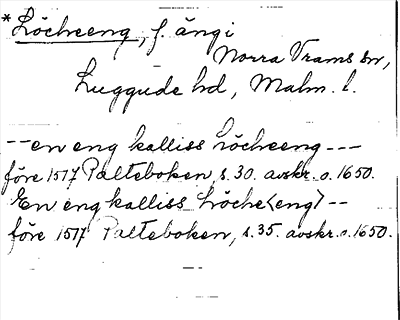 *Löcheeng, f. äng i
Norra Vrams sn,
Luggude hd, Malm. l.
-- en eng kalliss Löcheeng ---
före 1517 Palteboken, s. 30. avskr. o. 1650.
En eng kalliss Löche<eng> --
före 1517 Palteboken, s. 35. avskr. o. 1650.